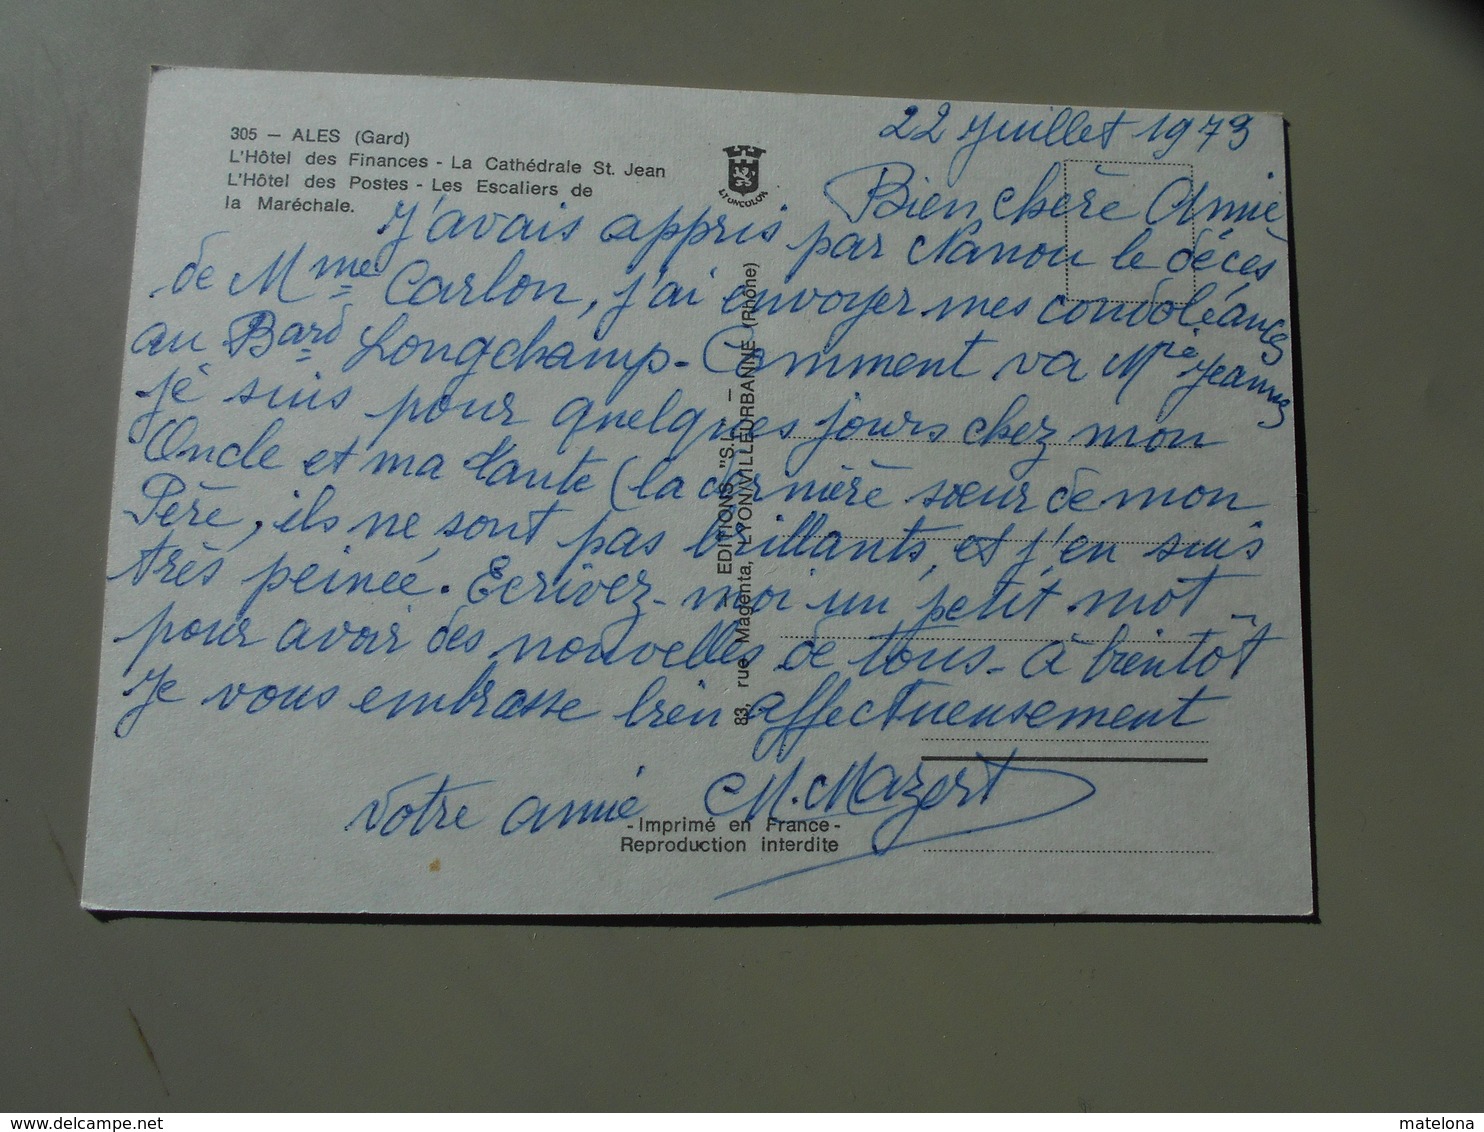 305 — ALES (Gard)
L'Hôtel des Finances - La Cathédrale St. Jean
L'Hôtel des Postes - Les Escaliers de
la Maréchale.
LYONCOLOR
EDITIONS "S.L." —
83, rue Magenta, LYON/VILLEURBANNE (Rhône)
22 Juillet 1973
Bien chère Amie
J'avais appris par Nanou le décès
de Mme Carlon, j'ai envoyer mes condoléances
au Bard Longchamp - Comment va Mie Jeanne
je suis pour quelques jours chez mon
Oncle et ma tante (la dernière sœur de mon
Père, ils ne sont pas brillants, et j'en suis
très peinée. Ecrivez-moi un petit mot -
pour avoir des nouvelles de tous - à bientôt
Je vous embrasse bien affectueusement
votre amie M. Mazert
- Imprimé en France -
Reproduction interdite
www.delcampe.net
matelona